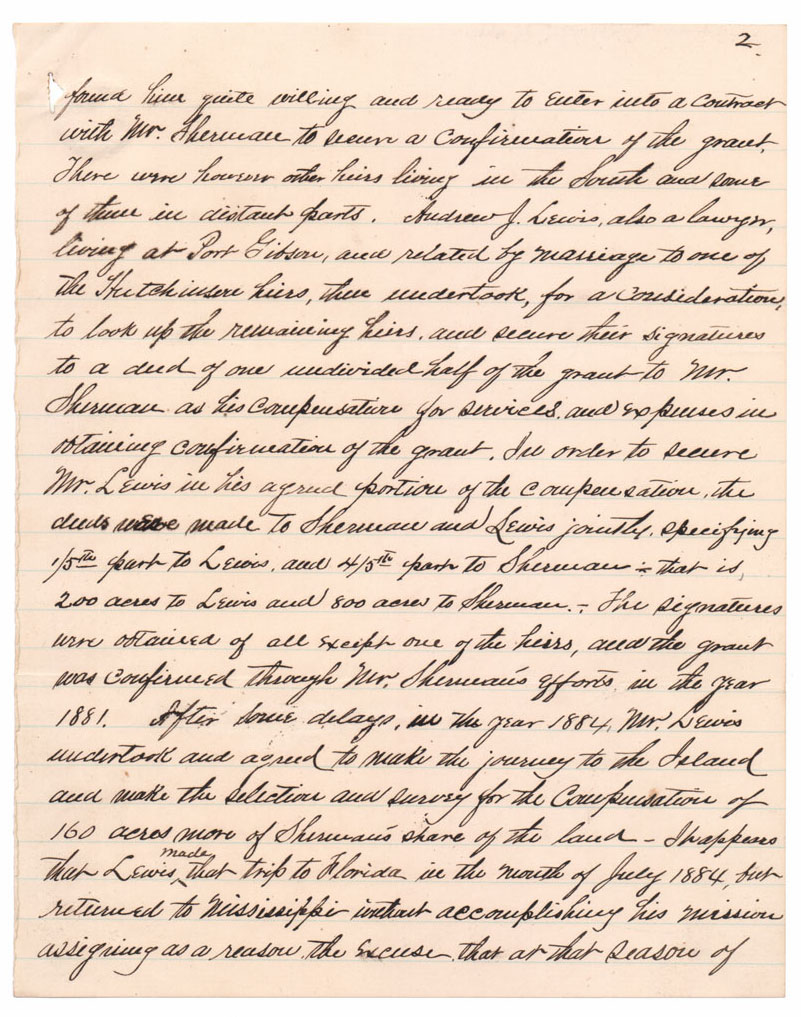 2.
found him quite willing and ready to enter into a contract
with Mr. Sherman to secure a confirmation of the grant.
There were however other heirs living in the South and some
of them in distant parts. Andrew J. Lewis, also a lawyer,
living at Port Gibson, and related by marriage to one of
the Hutchinson heirs, then undertook, for a consideration,
to look up the remaining heirs, and secure their signatures
to a deed of one undivided half of the grant to Mr.
Sherman as his compensation for services and expenses in
obtaining confirmation of the grant. In order to secure
Mr. Lewis in his agreed portion of the compensation, the
deeds were made to Sherman and Lewis jointly, specifying
1/5th part to Lewis, and 4/5th part to Sherman - that is,
200 acres to Lewis and 800 acres to Sherman. - The signatures
were obtained of all except one of the heirs, and the grant
was confirmed through Mr. Sherman's efforts in the year
1881. After some delays, in the year 1884, Mr. Lewis
undertook and agreed to make the journey to the Island
and make the selection and survey for the compensation of
160 acres more of Sherman's share of the land - It appears
that Lewis made that trip to Florida in the month of July 1884, but
returned to Mississippi without accomplishing his mission
assigning as a reason the excuse that at that season of